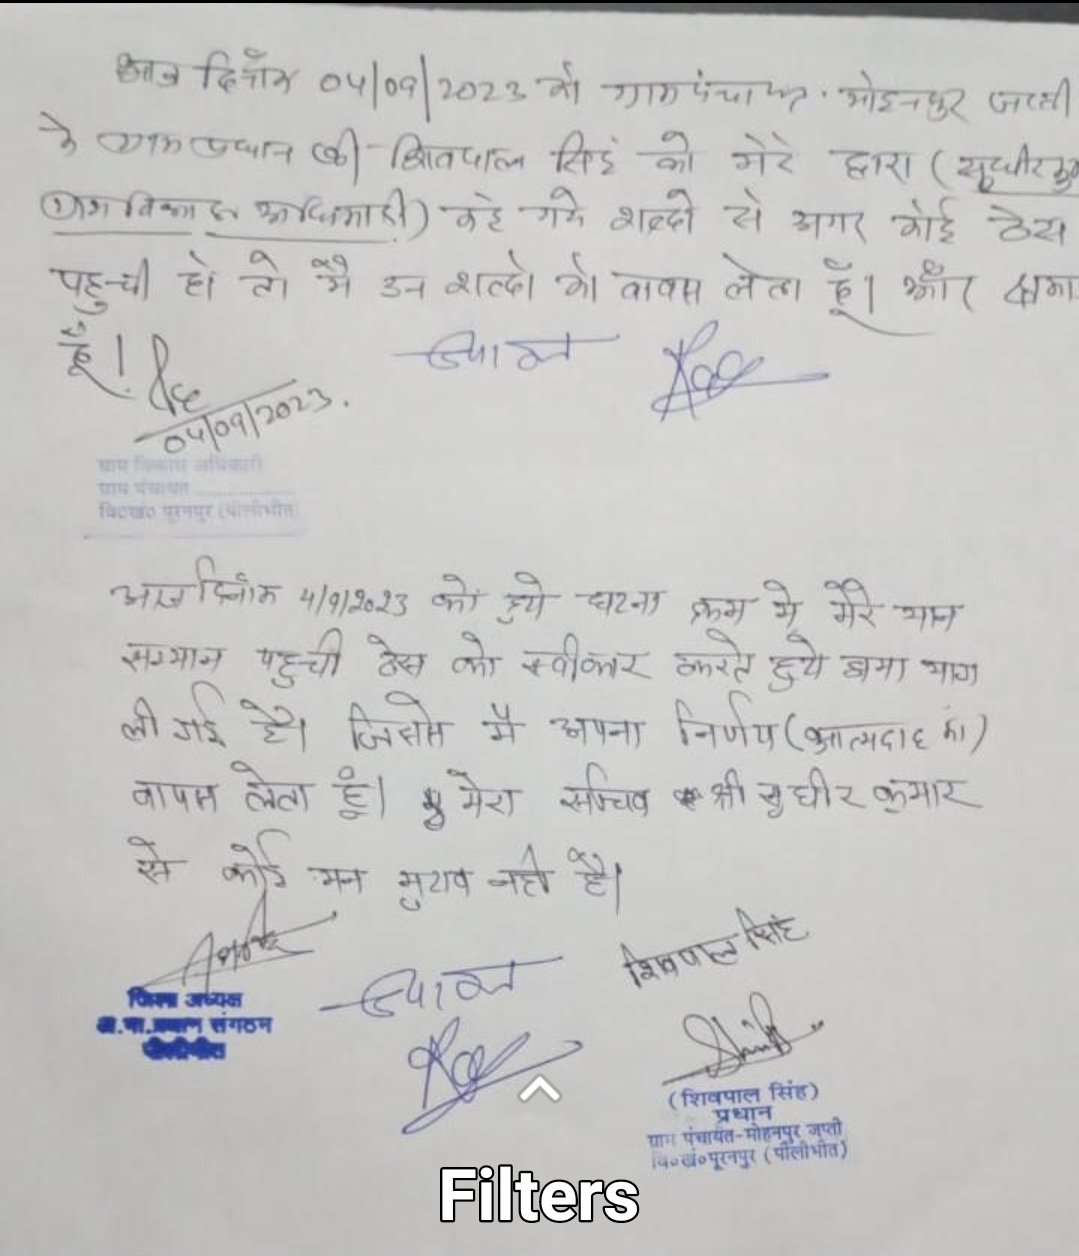 आज दिनाँक 04/09/2023 को ग्रामपंचायत मोहनपुर जप्ती
के ग्राम प्रधान श्री शिवपाल सिहं को मेरे द्वारा (सुधीर कु
ग्राम विकास अधिकारी) कहे गये शब्दो से अगर कोई ठेस
पहुची हो तो मै उन शब्दो को वापस लेता हूँ। और क्षमा
हूँ।
04/09/2023.
ग्राम विकास अधिकारी
ग्राम पंचायत
वि०खं० पूरनपुर (पीलीभीत)
आज दिनाँक 4/9/2023 को हुये घटना क्रम मे मेरे मान
सम्मान पहुची ठेस को स्वीकार करते हुये क्षमा माग
ली गई है। जिससे मै अपना निर्णय (आत्मदाह का)
वापस लेता हूं। मेरा सचिव श्री सुधीर कुमार
से कोई मन मुटाव नही है।
शिवपाल सिंह
जिला अध्यक्ष
संगठन
पीलीभीत
(शिवपाल सिंह)
प्रधान
ग्राम पंचायत-मोहनपुर जप्ती
वि०खं०पूरनपुर (पीलीभीत)
Filters